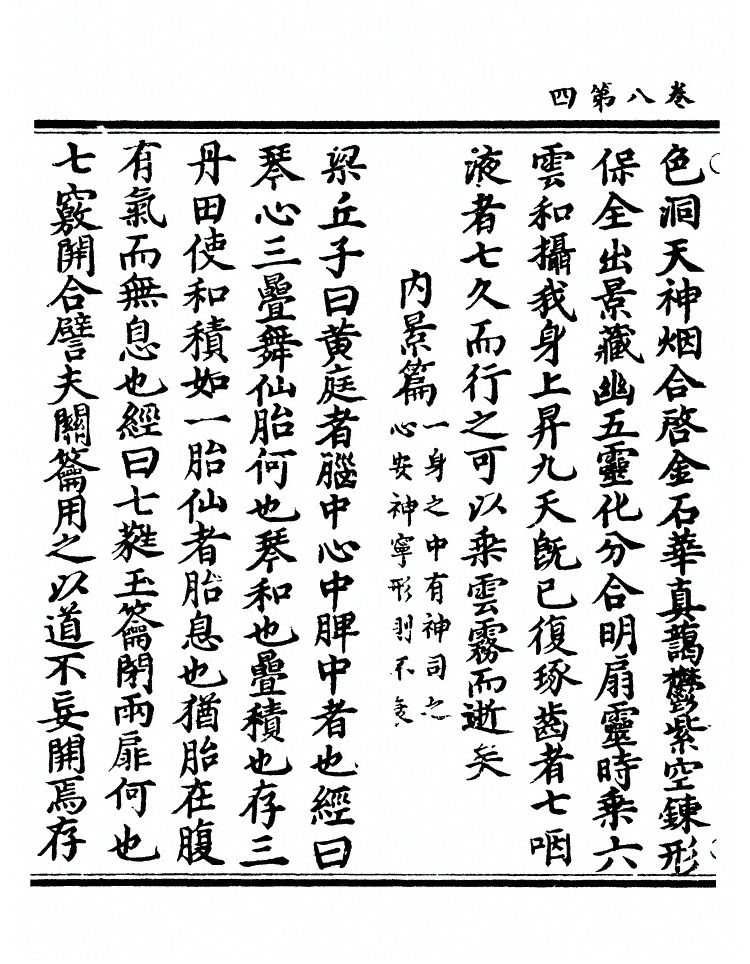 卷八第四
色洞天神烟合啓金石華真藹欝紫空鍊形
保全出景藏幽五靈化分合明扇靈時乗六
雲和攝我身上昇九天旣已復琢齒者七咽
液者七久而行之可以乗雲霧而逝矣
内景篇
一身之中有神司之
心安神寧形則不
梁丘子曰黄庭者腦中心中脾中者也經曰
琴心三疊舞仙胎何也琴和也疊積也存三
丹田使和積如一胎仙者胎息也猶胎在腹
有氣而無息也經曰七蕤玉籥閉兩扉何也
七竅開合譬夫關籥用之以道不妄開焉存